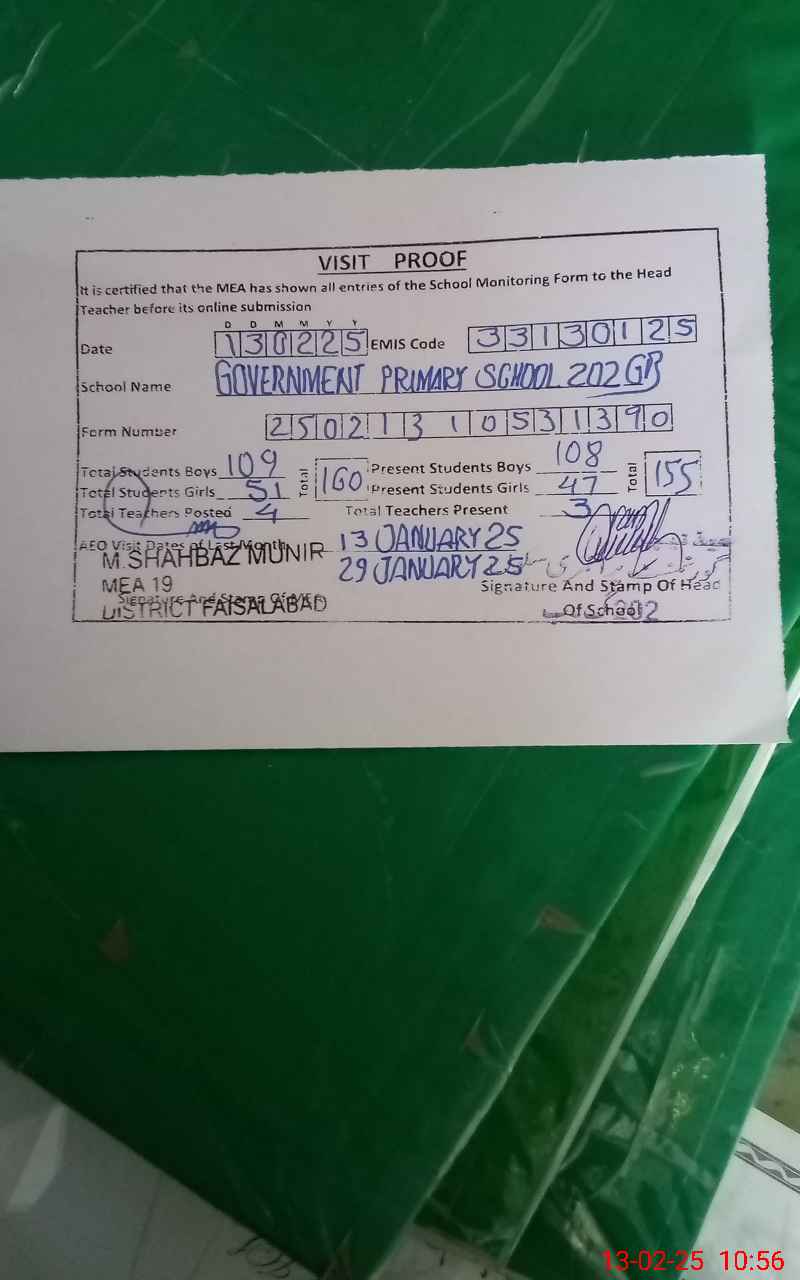 VISIT PROOF
It is certified that the MEA has shown all entries of the School Monitoring Form to the Head
Teacher before its online submission
D D M M Y Y
Date 130225 EMIS Code 33130125
School Name GOVERNMENT PRIMARY SCHOOL 202 GB
Form Number 25021310531390
Total Students Boys 109 Total 160 Present Students Boys 108 Total 155
Total Students Girls 51 Present Students Girls 47
Total Teachers Posted 4 Total Teachers Present 3
AEO Visit Dates of Last Month 13 JANUARY 25
29 JANUARY 25
M.SHAHBAZ MUNIR
MEA 19
DISTRICT FAISALABAD
Signature And Stamp Of MEA
Signature And Stamp Of Head
Of School
202
13-02-25 10:56